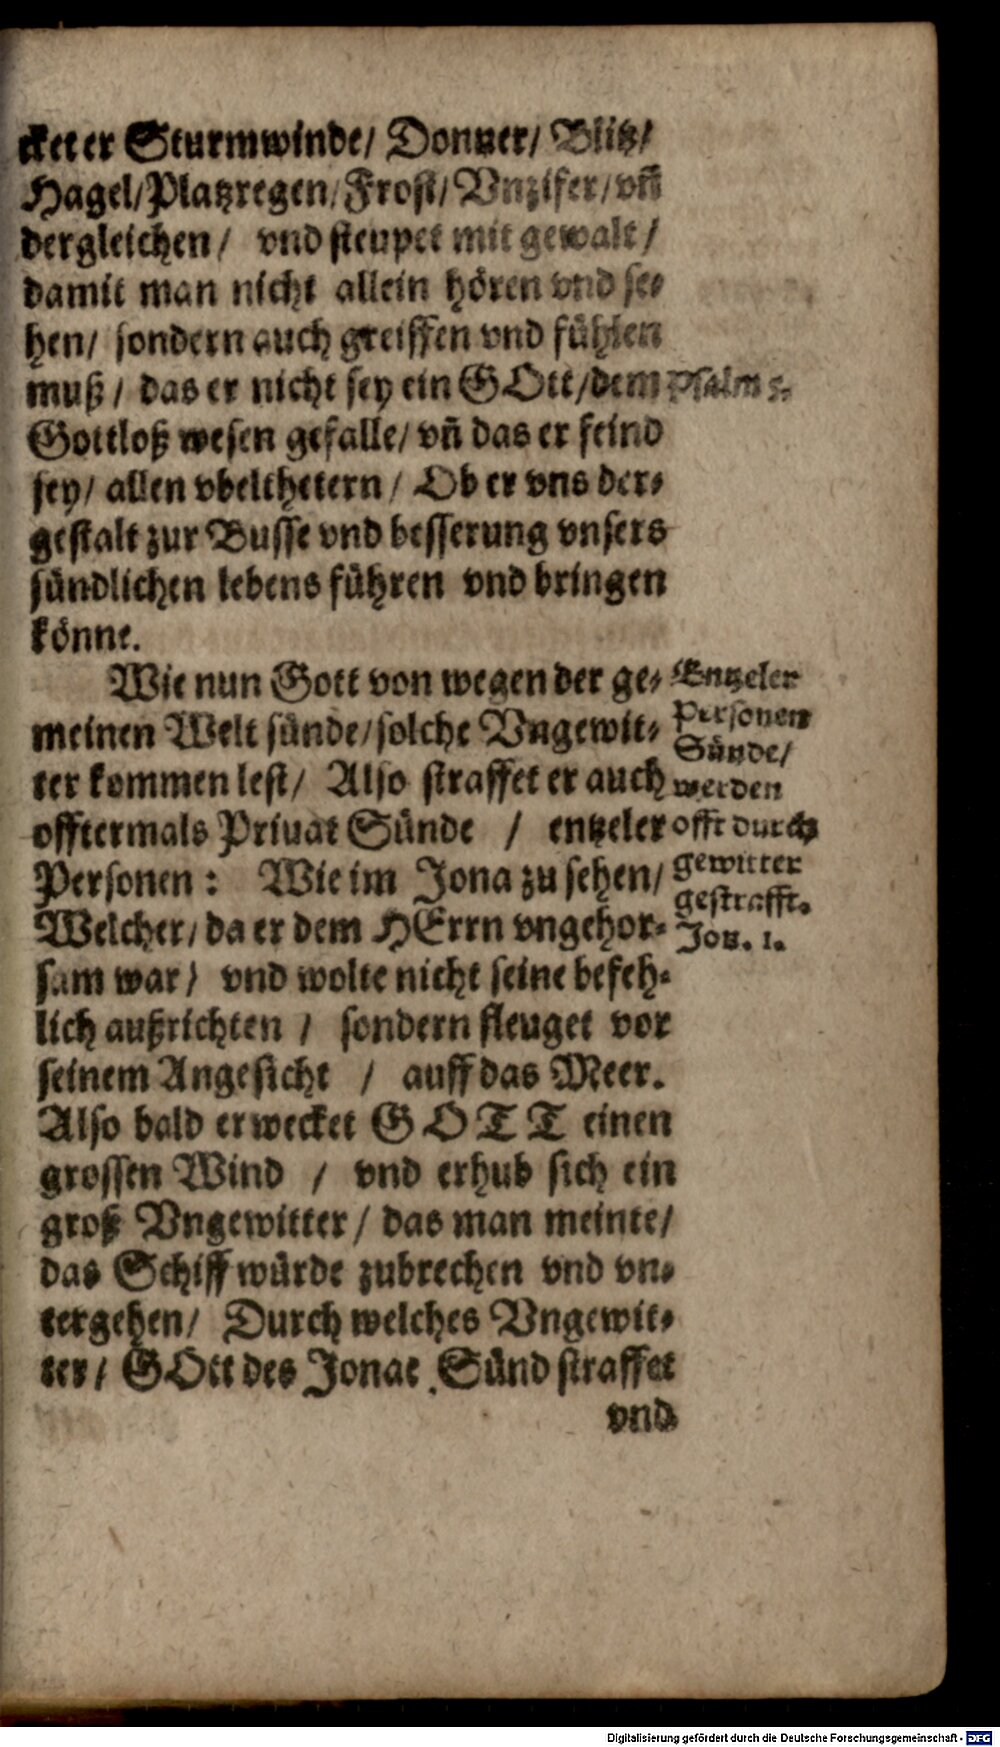 cket er Sturmwinde/ Donner/ Blitz/
Hagel/ Platzregen/ Frost/ Vnzifer/ vñ
dergleichen/ vnd steupet mit gewalt/
damit man nicht allein hören vnd se-
hen/ sondern auch greiffen vnd fühlen
muß/ das er nicht sey ein GOtt/ dem
Psalm 5.
Gottloß wesen gefalle/ vñ das er feind
sey/ allen vbelthetern/ Ob er vns der-
gestalt zur Busse vnd besserung vnsers
sündlichen lebens führen vnd bringen
könne.
Wie nun Gott von wegen der ge-
meinen Welt sünde/ solche Vngewit-
ter kommen lest/ Also straffet er auch
offtermals Priuat Sünde / entzeler
Personen: Wie im Jona zu sehen/
Welcher/ da er dem HErrn vngehor-
sam war/ vnd wolte nicht seine befeh-
lich außrichten / sondern fleuget vor
seinem Angesicht / auff das Meer.
Also bald erwecket GOTT einen
grossen Wind / vnd erhub sich ein
groß Vngewitter/ das man meinte/
das Schiff würde zubrechen vnd vn-
tergehen/ Durch welches Vngewit-
ter/ GOtt des Jonae Sünd straffet
vnd
Entzeler
Personen
Sünde/
werden
offt durch
gewitter
gestrafft.
Jon. 1.
Digitalisierung gefördert durch die Deutsche Forschungsgemeinschaft - DFG